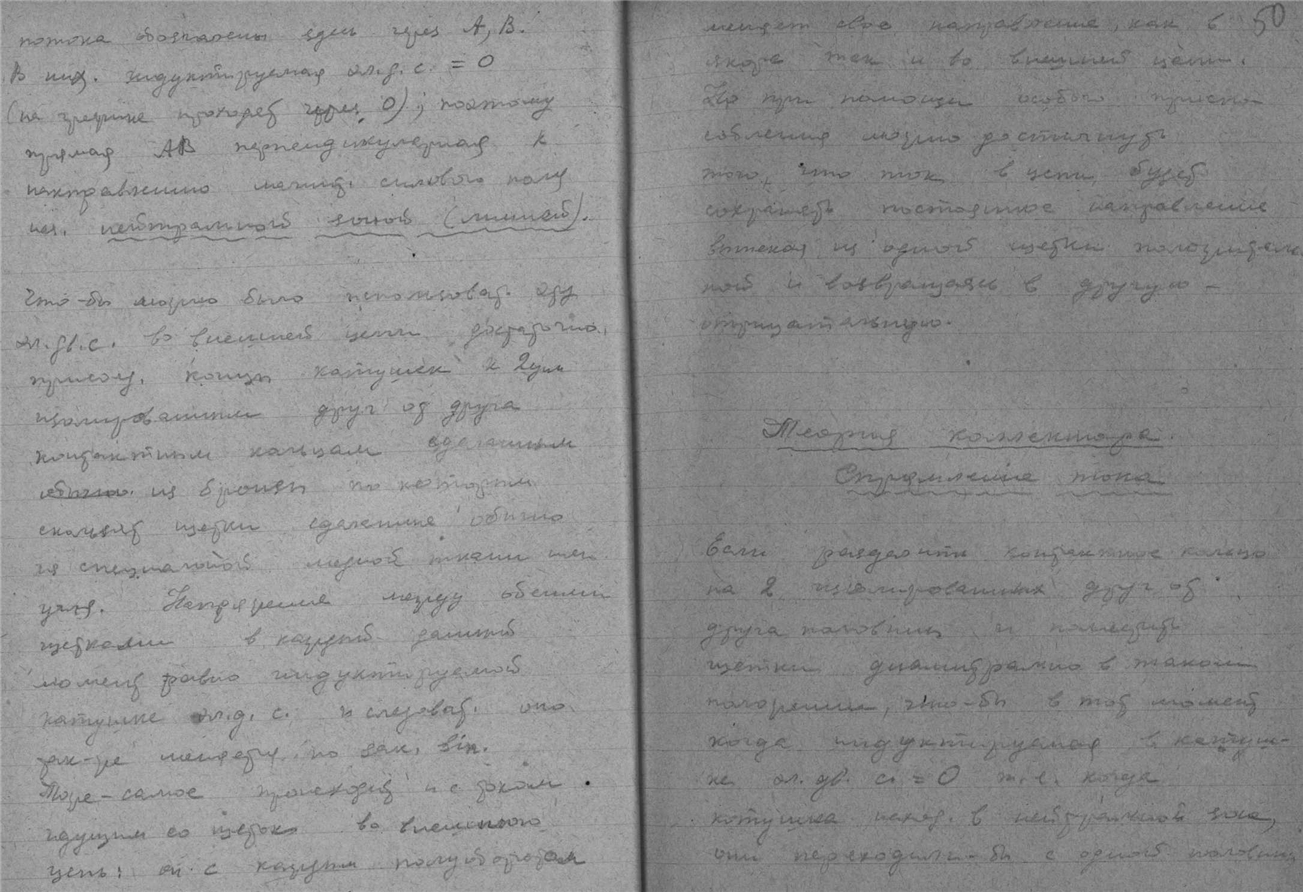 потока обозначены здесь через А, В.
В них. индуктируемая эл.д.с. = 0
(на графике проходят через 0); поэтому
прямая АВ перпендикулярная к
направлению магнит. силового поля
наз. нейтральной зоной (линией).
Что-бы можно было использоват. эту
эл.дв.с. во внешней цепи достаточно
присоед. концы катушек к 2ум
изолированным друг от друга
контактным кольцам сделанным
из бронзы по которым
скользят щетки сделанные обычно
из специальной медной ткани или
угля. Напряжение между обеими
щетками в каждый данный
момент равно индуктируемой
катушке эл.д.с. и следоват. оно
так-же меняется по зак. Sin.
Тоже-самое происходит и с током
идущим со щеток во внешнюю
цепь: он с каждым полуоборотом
50
меняет свое направление, как в
якоре так и во внешней цепи.
Но при помощи особого приспо-
собления можно достигнуть
того, что ток в цепи будет
сохранять постоянное направление
вытекая из одной щетки положитель
ной и возвращаясь в другую -
отрицательную.
Теория коллектора.
Спрямление тока
Если разделить контактное кольцо
на 2 изолированных друг от
друга половины и поместить
щетки диаметрально в таком
положении, что-бы в тот момент
когда индуктируемая в катуш-
ке эл. дв. с. = 0 т.е. когда
катушка наход. в нейтральной зоне,
они переходили-бы с одной половины